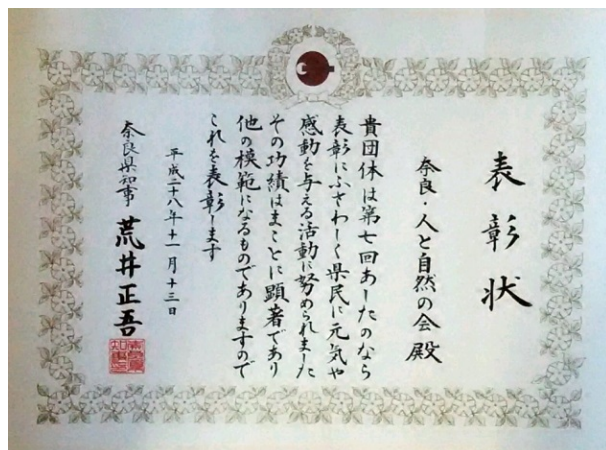 表彰状
奈良・人と自然の会殿
貴団体は第七回あしたのなら
表彰にふさわしく県民に元気や
感動を与える活動に努められました
その功績はまことに顕著であり
他の模範になるものでありますので
これを表彰します
平成二十八年十一月十三日
奈良県知事 荒井正吾